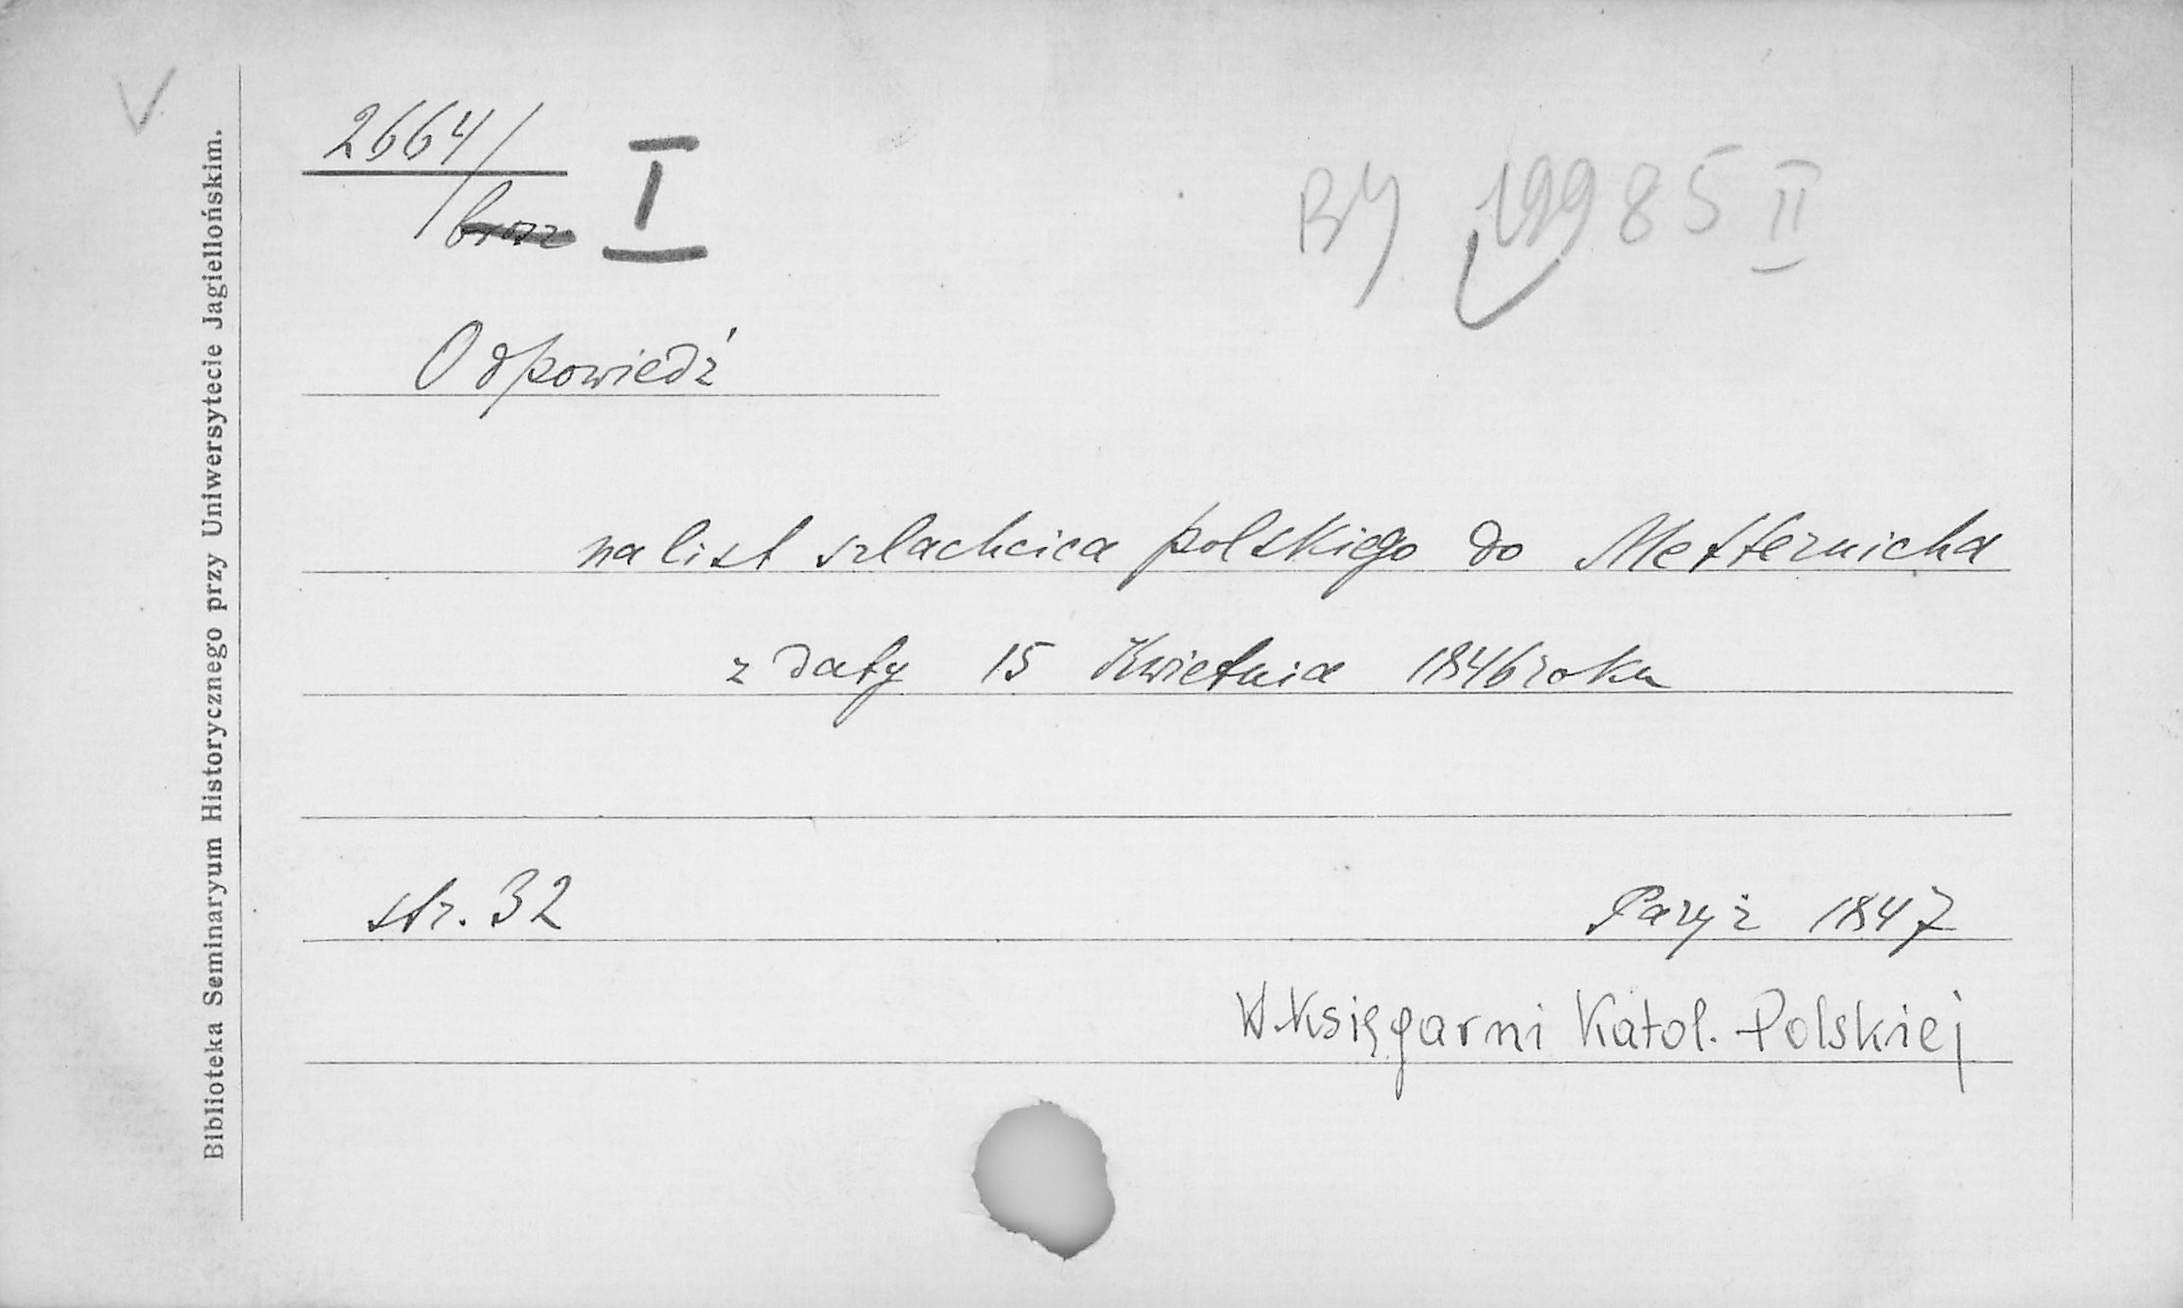 V
2664/
brosz I
BJ 19985 II
Odpowiedź
na list szlachcica polskiego do Metternicha
z daty 15 Kwietnia 1846 roku
str. 32 Paryż 1847
W. Księgarni Katol. Polskiej
Biblioteka Seminaryum Historycznego przy Uniwersytecie Jagiellońskim.